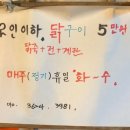 인이하. 닭구이 5만원
닭죽+전+계란
매주(정기)휴일 화-수.
no. 364. 3981.